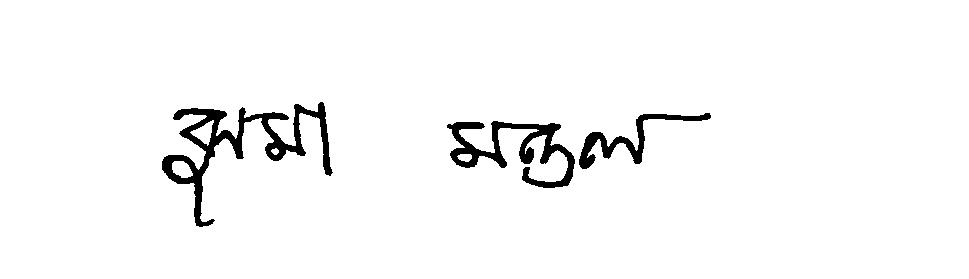 ঝুমা মন্ডল